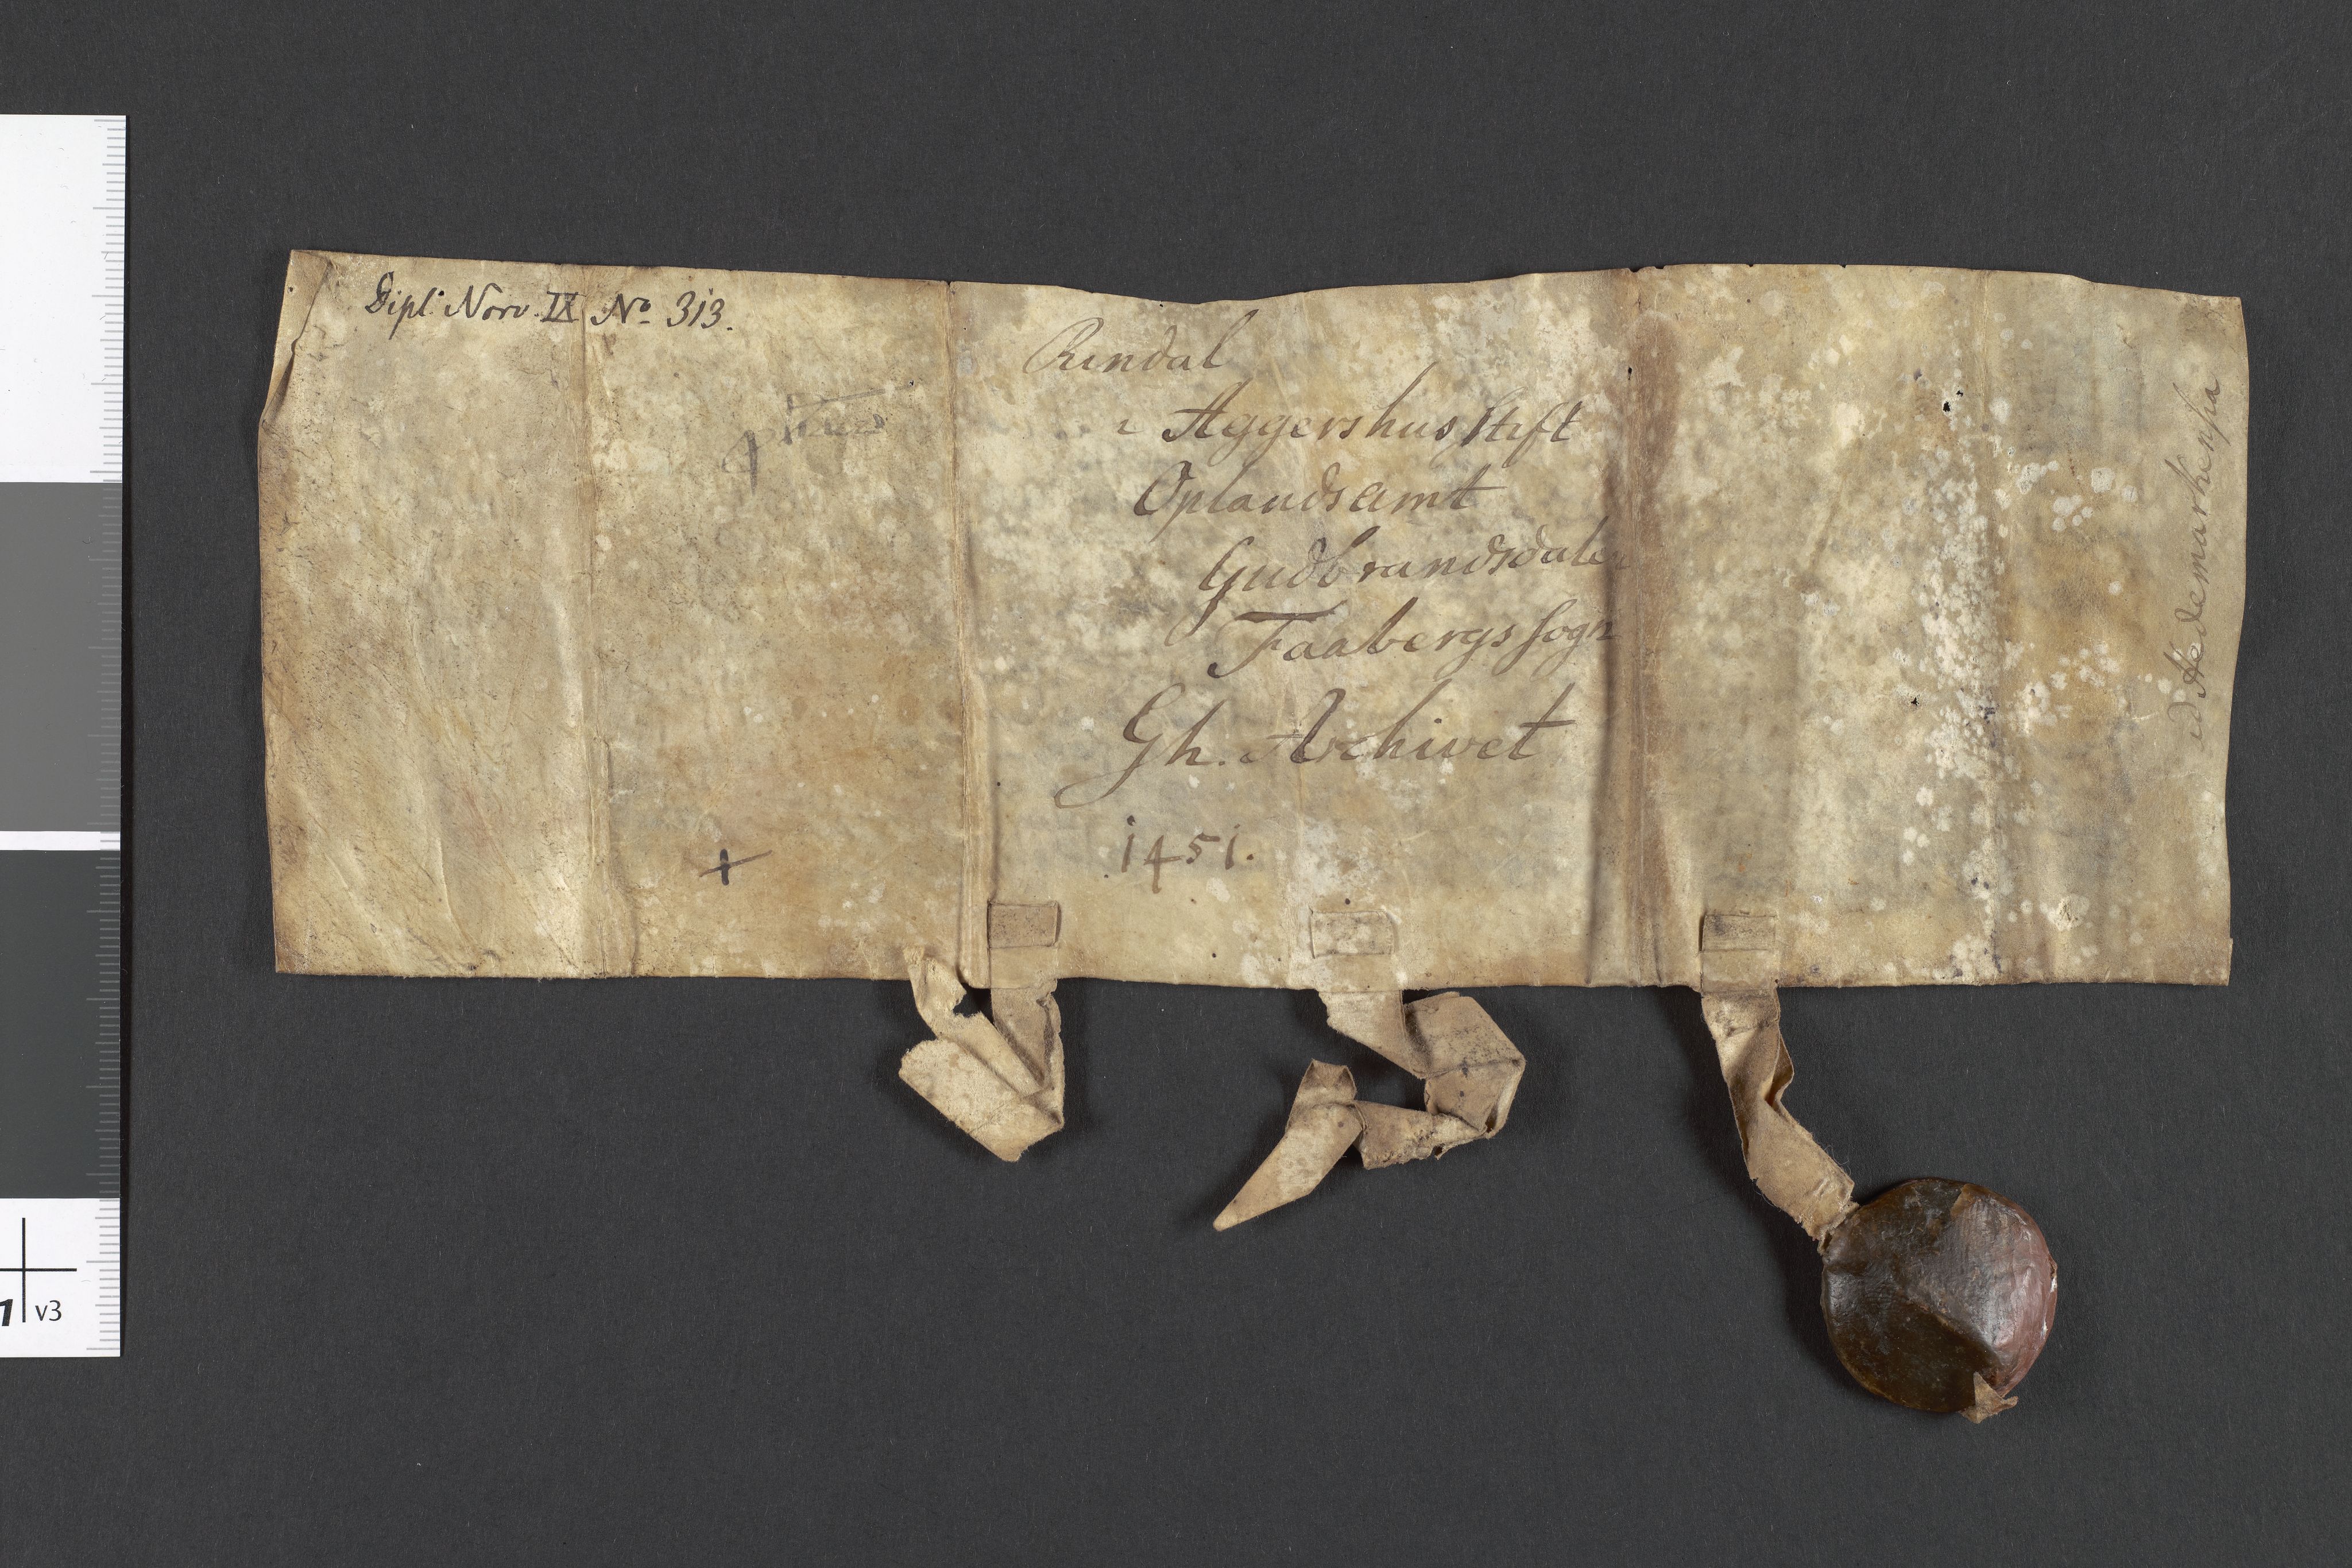 Dipl. Norv. IX No 313.
Rindal
i Aggershus Stift
Oplands amt
Gudbrandsdalen
Faabergs sogn
Gh. Archivet
1451.
+
v3